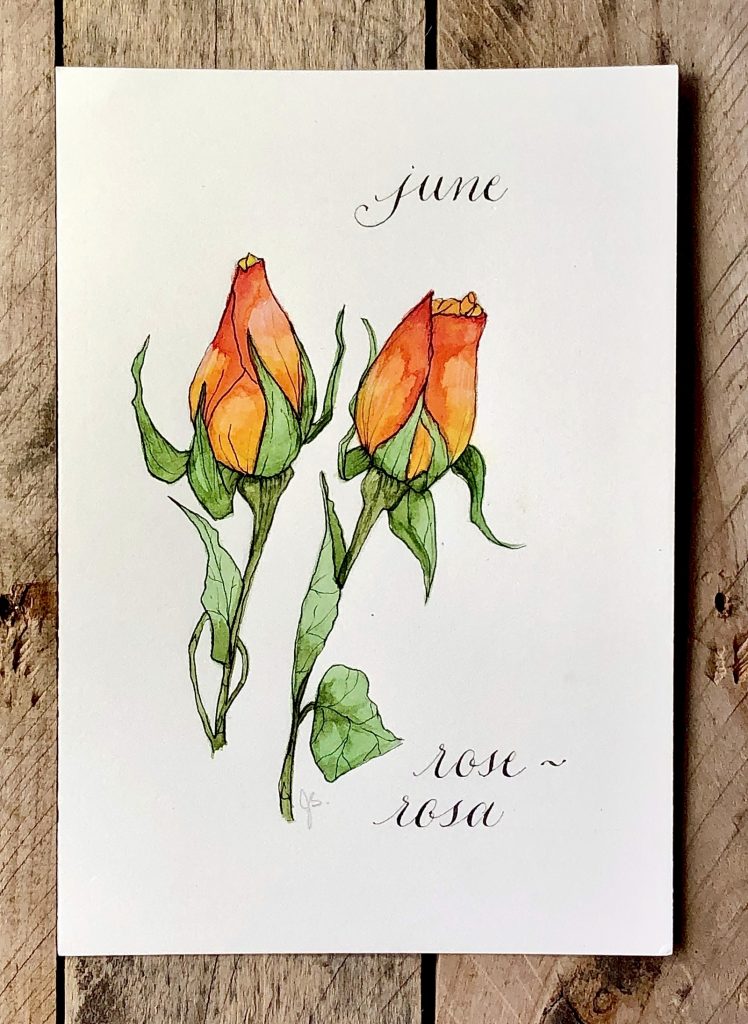 june
rose ~
rosa
JB.